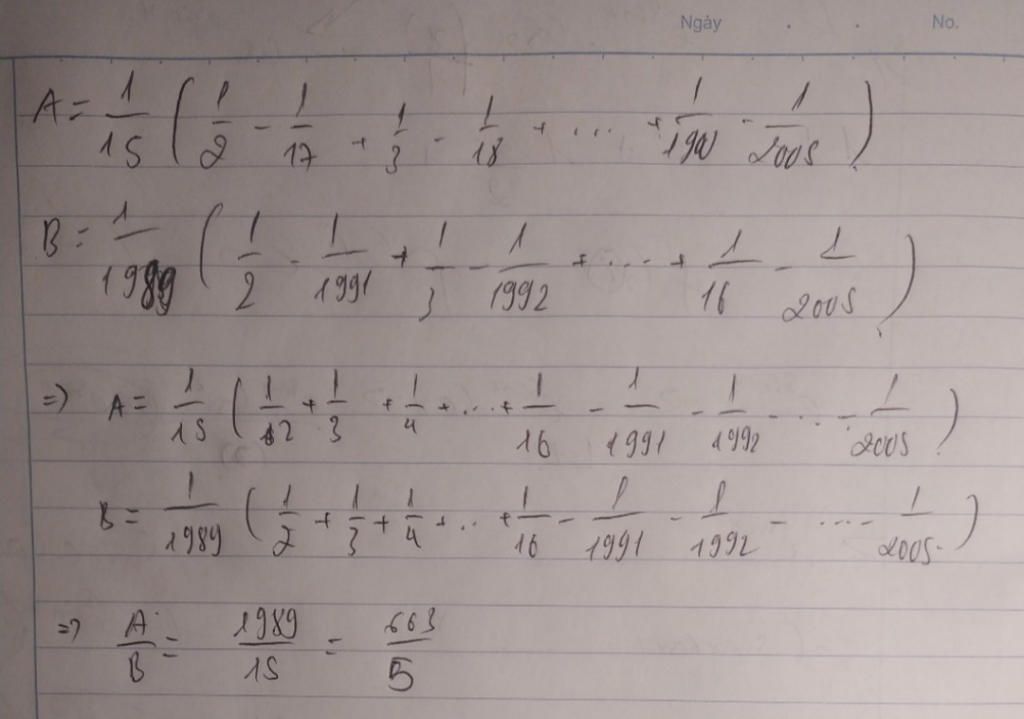 Ngày . . No.
A = 1/15 ( 1/2 - 1/17 + 1/3 - 1/18 + ... + 1/1990 - 1/2005 )
B = 1/1989 ( 1/2 - 1/1991 + 1/3 - 1/1992 + ... + 1/16 - 1/2005 )
=> A = 1/15 ( 1/2 + 1/3 + 1/4 + ... + 1/16 - 1/1991 - 1/1992 - ... - 1/2005 )
B = 1/1989 ( 1/2 + 1/3 + 1/4 + ... + 1/16 - 1/1991 - 1/1992 - .... - 1/2005 )
=> A/B = 1989/15 = 663/5